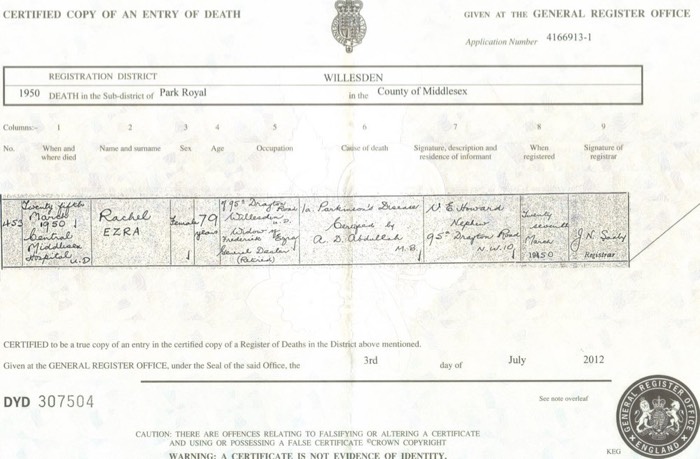 CERTIFIED COPY OF AN ENTRY OF DEATH
GIVEN AT THE GENERAL REGISTER OFFICE
Application Number 4166913-1
REGISTRATION DISTRICT WILLESDEN
1950 DEATH in the Sub-district of Park Royal in the County of Middlesex
Columns:- 1 2 3 4 5 6 7 8 9
No. When and where died Name and surname Sex Age Occupation Cause of death Signature, description and residence of informant When registered Signature of registrar
453
Twenty fifth
March
1950
Central
Middlesex
Hospital U.D
Rachel
EZRA
Female
79
years
95ᵃ Drayton
Road
Willesden
Widow of
Frederick Ezra
Dealer
(Retired)
1a. Parkinson's Disease
Certified by
A. D. Abdullah
M.B.
N E Howard
Nephew
95ᵃ Drayton Road
N.W.10
Twenty
seventh
March
1950
Registrar
CERTIFIED to be a true copy of an entry in the certified copy of a Register of Deaths in the District above mentioned.
Given at the GENERAL REGISTER OFFICE, under the Seal of the said Office, the 3rd day of July 2012
DYD 307504
See note overleaf
CAUTION: THERE ARE OFFENCES RELATING TO FALSIFYING OR ALTERING A CERTIFICATE
AND USING OR POSSESSING A FALSE CERTIFICATE ©CROWN COPYRIGHT
WARNING: A CERTIFICATE IS NOT EVIDENCE OF IDENTITY.
KEG
GENERAL REGISTER OFFICE
ENGLAND